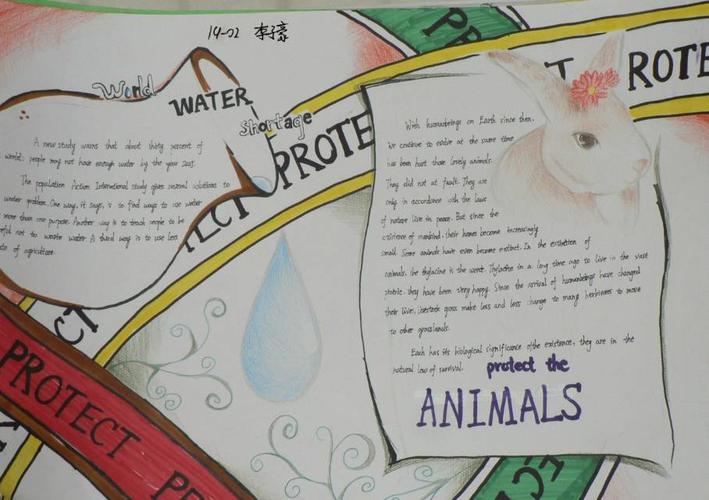 14-02 李子豪
World
WATER
Shortage
A new study warns that about thirty percent of
world's people may not have enough water by the year 2025.
The population Action International study gives several solutions to
water problem. One way, it says, is to find ways to use water
more than one purpose. Another way is to teach people to be
eful not to waste water. A third way is to use less
of agriculture.
With humanbeings on Earth since then.
We continue to evolve at the same time
has been hurt those lovely animals.
They did not at fault. They are
only in accordance with the laws
of nature live in peace. But since the
existence of mankind, their homes become increasingly
small. Some animals have even become extinct. In the extinction of
animals, the thylacine is the worst. Thylacine in a long time ago to live in the vast
prairie, they have been very happy. Since the arrival of humanbeings have changed
their live, grass make less and less change to many herbivores to move
to other grasslands.
Each has its biological significance of the existence, they are in the
natural law of survival.
protect the
ANIMALS
PR
PROTE
T
ROTE
ECT
CT
PROTECT
PR
ECT